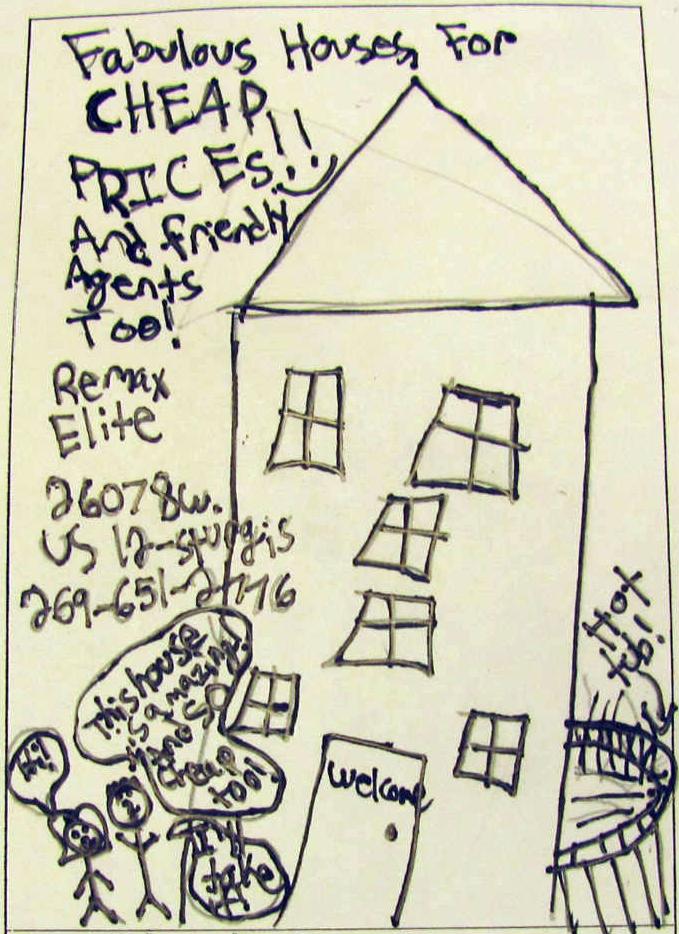 Fabulous Houses For
CHEAP
PRICES!!
And friendly
Agents
Too!
Remax
Elite
26078 W.
US 12-sturgis
269-651-2776
This house
is amazing!
and SO
cheap
too!
Hi!
I'll
take
Welcome
Hot
tub!